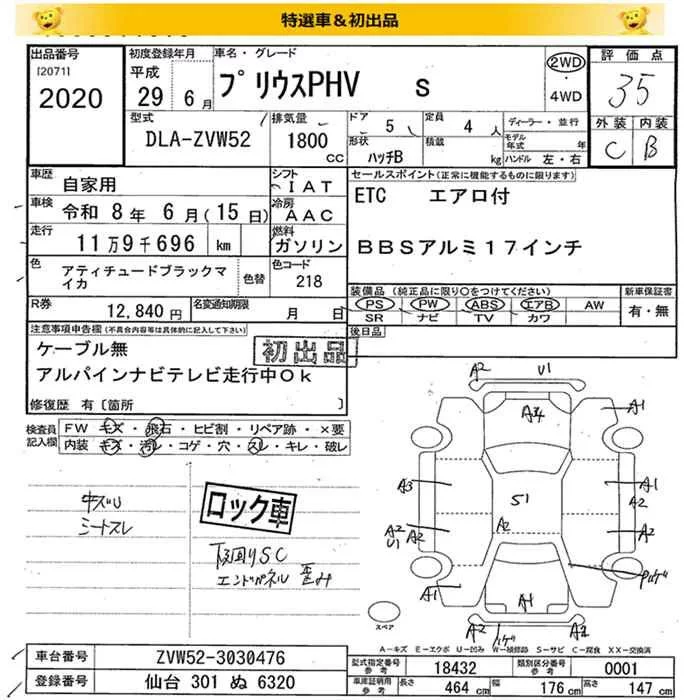 特選車＆初出品
出品番号
[2071]
2020
初度登録年月
平成
29 6月
車名・グレード
プリウスPHV S
2WD
・
4WD
評価点
35
外装 内装
C B
型式
DLA-ZVW52
排気量
1800
CC
ドア
5
定員
4 人
形状
ハッチB
積載
kg
ディーラー・並行
モデル年式 年
ハンドル 左・右
車歴
自家用
シフト
IAT
車検
令和 8年 6月(15日)
冷房
AAC
走行
11万9千696 km
燃料
ガソリン
色
アティチュードブラックマイカ
色替
色コード
218
R券
12,840円
名変通知期限
月 日
セールスポイント(正常に機能するものに限ります)
ETC エアロ付
BBSアルミ17インチ
装備品(純正品に限り○をつけてください)
PS PW ABS エアB AW
SR ナビ TV カワ
新車保証書
有・無
後日品
注意事項申告欄(不具合内容等は具体的に記入して下さい)
ケーブル無
初出品
アルパインナビテレビ走行中Ok
修復歴 有〔箇所 〕
検査員記入欄
FW キズ・飛石・ヒビ割・リペア跡・×要
内装 キズ・汚レ・コゲ・穴・スレ・キレ・破レ
キズU
シートスレ
ロック車
下回りSC
エンドパネル 歪み
A2 U1
A1
A3
A1
A2
S1
A2
U1
A2
A2
A2
A1
A1
A2
A2
スペア
A-キズ E-エクボ U-凹み W-補修跡 S-サビ C-腐食 XX-交換済
車台番号
ZVW52-3030476
登録番号
仙台 301 ぬ 6320
型式指定番号
参考
18432
類別区分番号
参考
0001
車庫証明用
参考
長さ
464 cm
幅
176 cm
高さ
147 cm